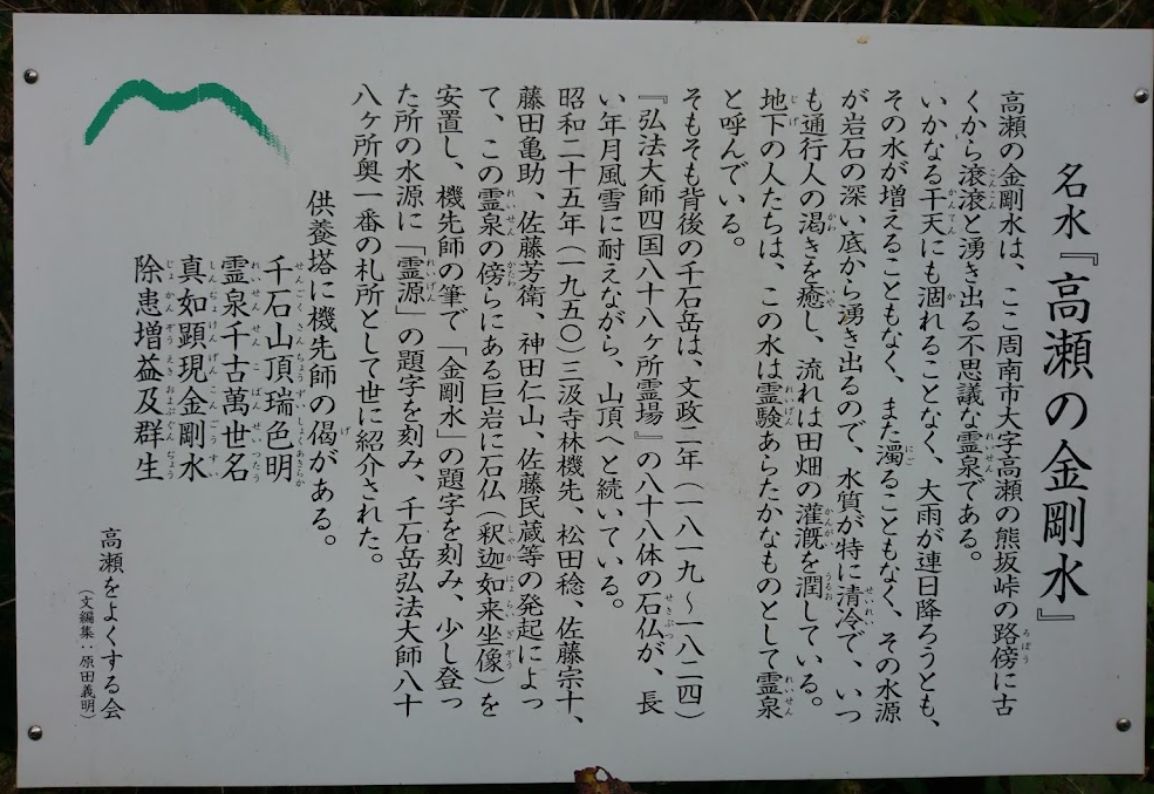 名水『高瀬の金剛水』
高瀬の金剛水は、ここ周南市大字高瀬の熊坂峠の路傍に古
くから滾滾と湧き出る不思議な霊泉である。
いかなる干天にも涸れることなく、大雨が連日降ろうとも、
その水が増えることもなく、また濁ることもなく、その水源
が岩石の深い底から湧き出るので、水質が特に清冷で、いつ
も通行人の渇きを癒し、流れは田畑の灌漑を潤している。
地下の人たちは、この水は霊験あらたかなものとして霊泉
と呼んでいる。
そもそも背後の千石岳は、文政二年(一八一九~一八二四)
『弘法大師四国八十八ヶ所霊場』の八十八体の石仏が、長
い年月風雪に耐えながら、山頂へと続いている。
昭和二十五年(一九五〇)三汲寺林機先、松田稔、佐藤宗十、
藤田亀助、佐藤芳衛、神田仁山、佐藤民蔵等の発起によっ
て、この霊泉の傍らにある巨岩に石仏(釈迦如来坐像)を
安置し、機先師の筆で「金剛水」の題字を刻み、少し登っ
た所の水源に「霊源」の題字を刻み、千石岳弘法大師八十
八ヶ所奥一番の札所として世に紹介された。
供養塔に機先師の偈がある。
千石山頂瑞色明
霊泉千古萬世名
真如顕現金剛水
除患増益及群生
高瀬をよくする会
(文編集:原田義明)